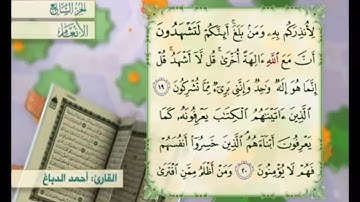 الجزء السابع
الأنعام
لِأُنذِرَكُم بِهِۦ وَمَنۢ بَلَغَ ۚ أَئِنَّكُمْ لَتَشْهَدُونَ
أَنَّ مَعَ ٱللَّهِ ءَالِهَةً أُخْرَىٰ ۚ قُل لَّآ أَشْهَدُ ۚ قُلْ
إِنَّمَا هُوَ إِلَٰهٌ وَٰحِدٌ وَإِنَّنِى بَرِىٓءٌ مِّمَّا تُشْرِكُونَ ١٩
ٱلَّذِينَ ءَاتَيْنَٰهُمُ ٱلْكِتَٰبَ يَعْرِفُونَهُۥ كَمَا
يَعْرِفُونَ أَبْنَآءَهُمُ ۘ ٱلَّذِينَ خَسِرُوٓا۟ أَنفُسَهُمْ
فَهُمْ لَا يُؤْمِنُونَ ٢٠ وَمَنْ أَظْلَمُ مِمَّنِ ٱفْتَرَىٰ
القارئ: أحمد الدباغ